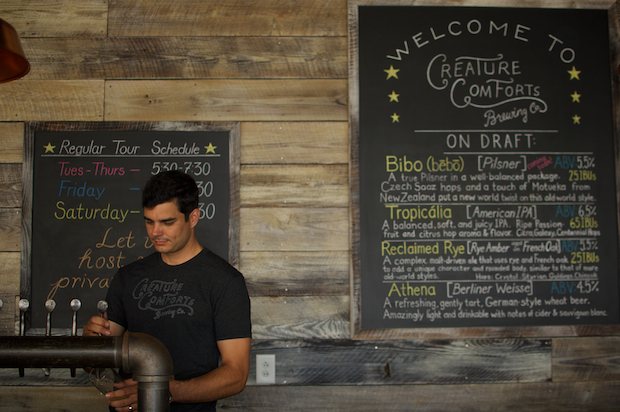 Regular Tour Schedule
Tues-Thurs — 5:30-7:30
Friday
Saturday
:30
host
WELCOME TO
CREATURE COMFORTS
Brewing Co.
ON DRAFT:
Bibo (bēbō) [Pilsner] ABV 5.5%
A true Pilsner in a well-balanced package. 25IBUs
Czech Saaz hops and a touch of Motueka from
New Zealand put a new world twist on this old world style.
Tropicália [American IPA] ABV 6.5%
A balanced, soft, and juicy IPA. Ripe Passion 65IBUs
fruit and citrus hop aroma & flavor. Citra, Galaxy, Centennial Hops
Reclaimed Rye [Rye Amber on French Oak] ABV 5.5%
A complex, malt-driven ale that uses rye and French oak 25IBUs
to add a unique character and rounded body, similar to that of more
old-world styles.
Athena [Berliner Weisse] ABV 4.5%
A refreshing, gently tart, German-style wheat beer.
Amazingly light and drinkable with notes of cider & sauvignon blanc.
CREATURE COMFORTS
Brewing Co.